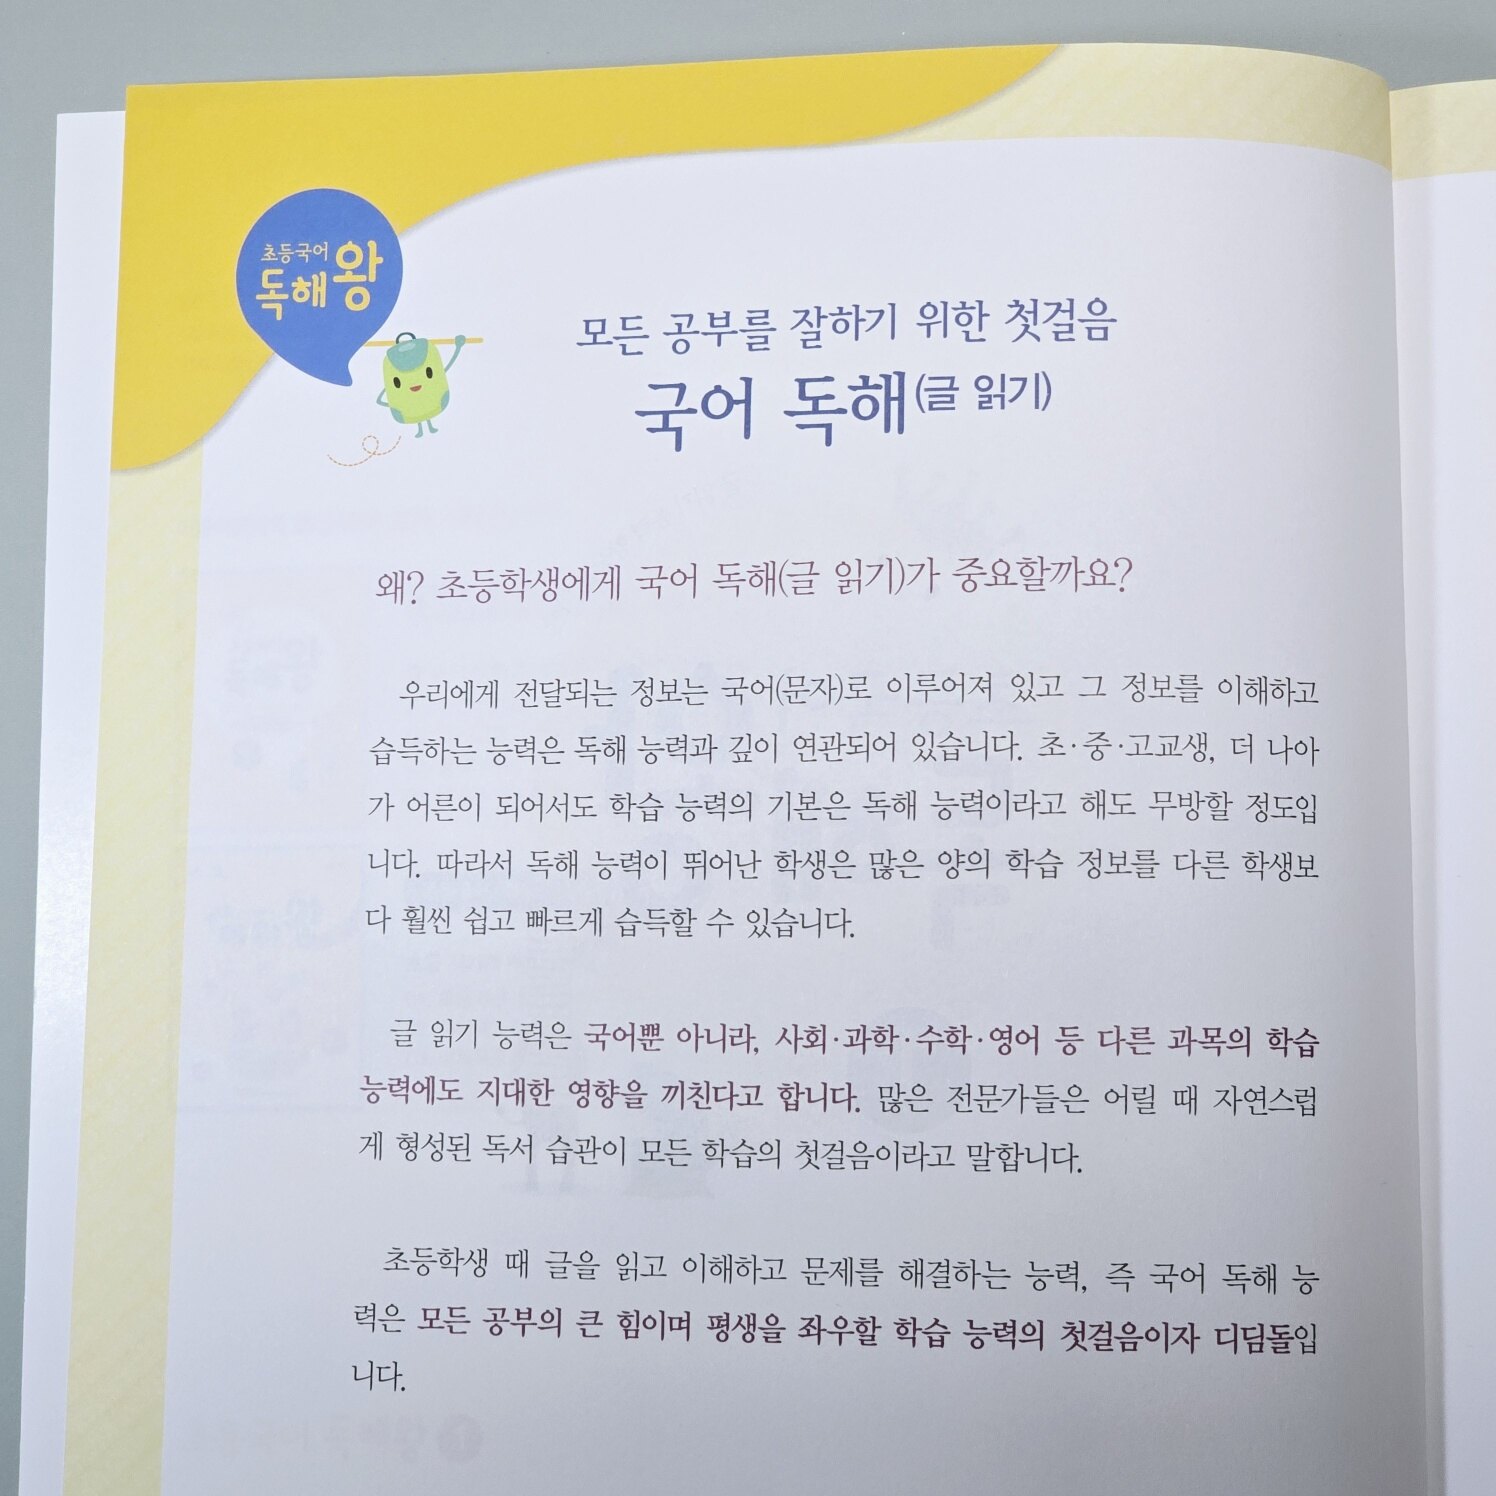 초등국어
독해왕
모든 공부를 잘하기 위한 첫걸음
국어 독해(글 읽기)
왜? 초등학생에게 국어 독해(글 읽기)가 중요할까요?
우리에게 전달되는 정보는 국어(문자)로 이루어져 있고 그 정보를 이해하고
습득하는 능력은 독해 능력과 깊이 연관되어 있습니다. 초·중·고교생, 더 나아
가 어른이 되어서도 학습 능력의 기본은 독해 능력이라고 해도 무방할 정도입
니다. 따라서 독해 능력이 뛰어난 학생은 많은 양의 학습 정보를 다른 학생보
다 훨씬 쉽고 빠르게 습득할 수 있습니다.
글 읽기 능력은 국어뿐 아니라, 사회·과학·수학·영어 등 다른 과목의 학습
능력에도 지대한 영향을 끼친다고 합니다. 많은 전문가들은 어릴 때 자연스럽
게 형성된 독서 습관이 모든 학습의 첫걸음이라고 말합니다.
초등학생 때 글을 읽고 이해하고 문제를 해결하는 능력, 즉 국어 독해 능
력은 모든 공부의 큰 힘이며 평생을 좌우할 학습 능력의 첫걸음이자 디딤돌입
니다.